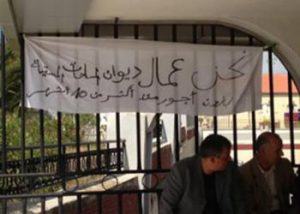 نحن عمال ديوان المساحات المسقية
بدون أجور منذ أكثر من 10 أشهر